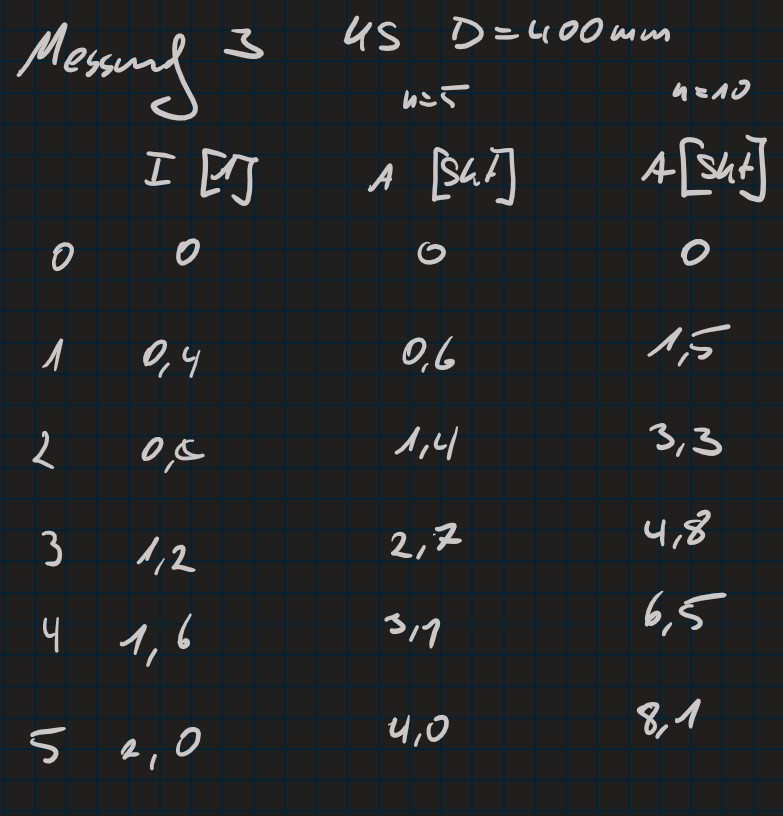 Messung 3 KS D=400mm
n=5 n=10
I [1] A [Skt] A [Skt]
0 0 0 0
1 0,4 0,6 1,5
2 1,4 3,3
3 1,2 2,7 4,8
4 1,6 3,1 6,5
5 2,0 4,0 8,1